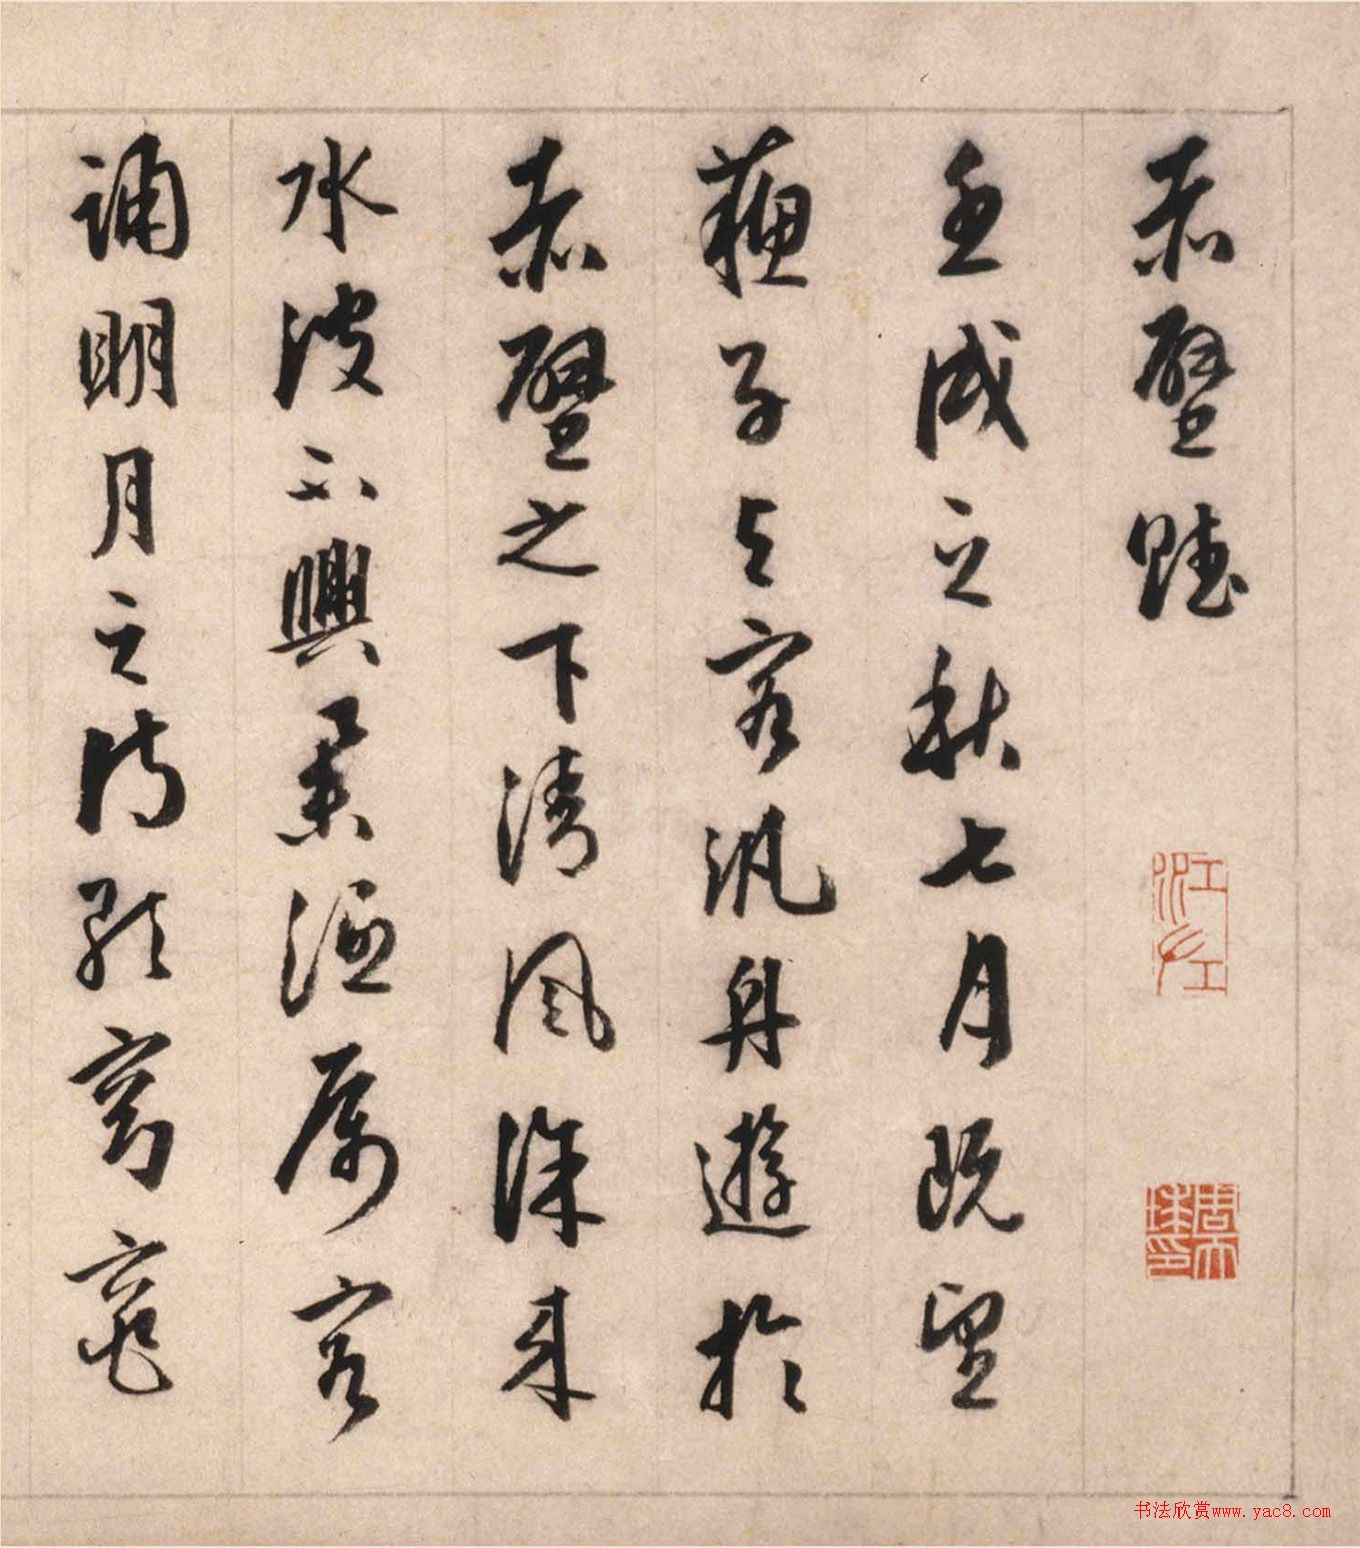 赤壁賦
壬戌之秋七月既望
蘇子与客汎舟遊於
赤壁之下清風徐來
水波不興舉酒属客
誦明月之詩歌窈窕
江左
周天球印
书法欣赏www.yac8.com